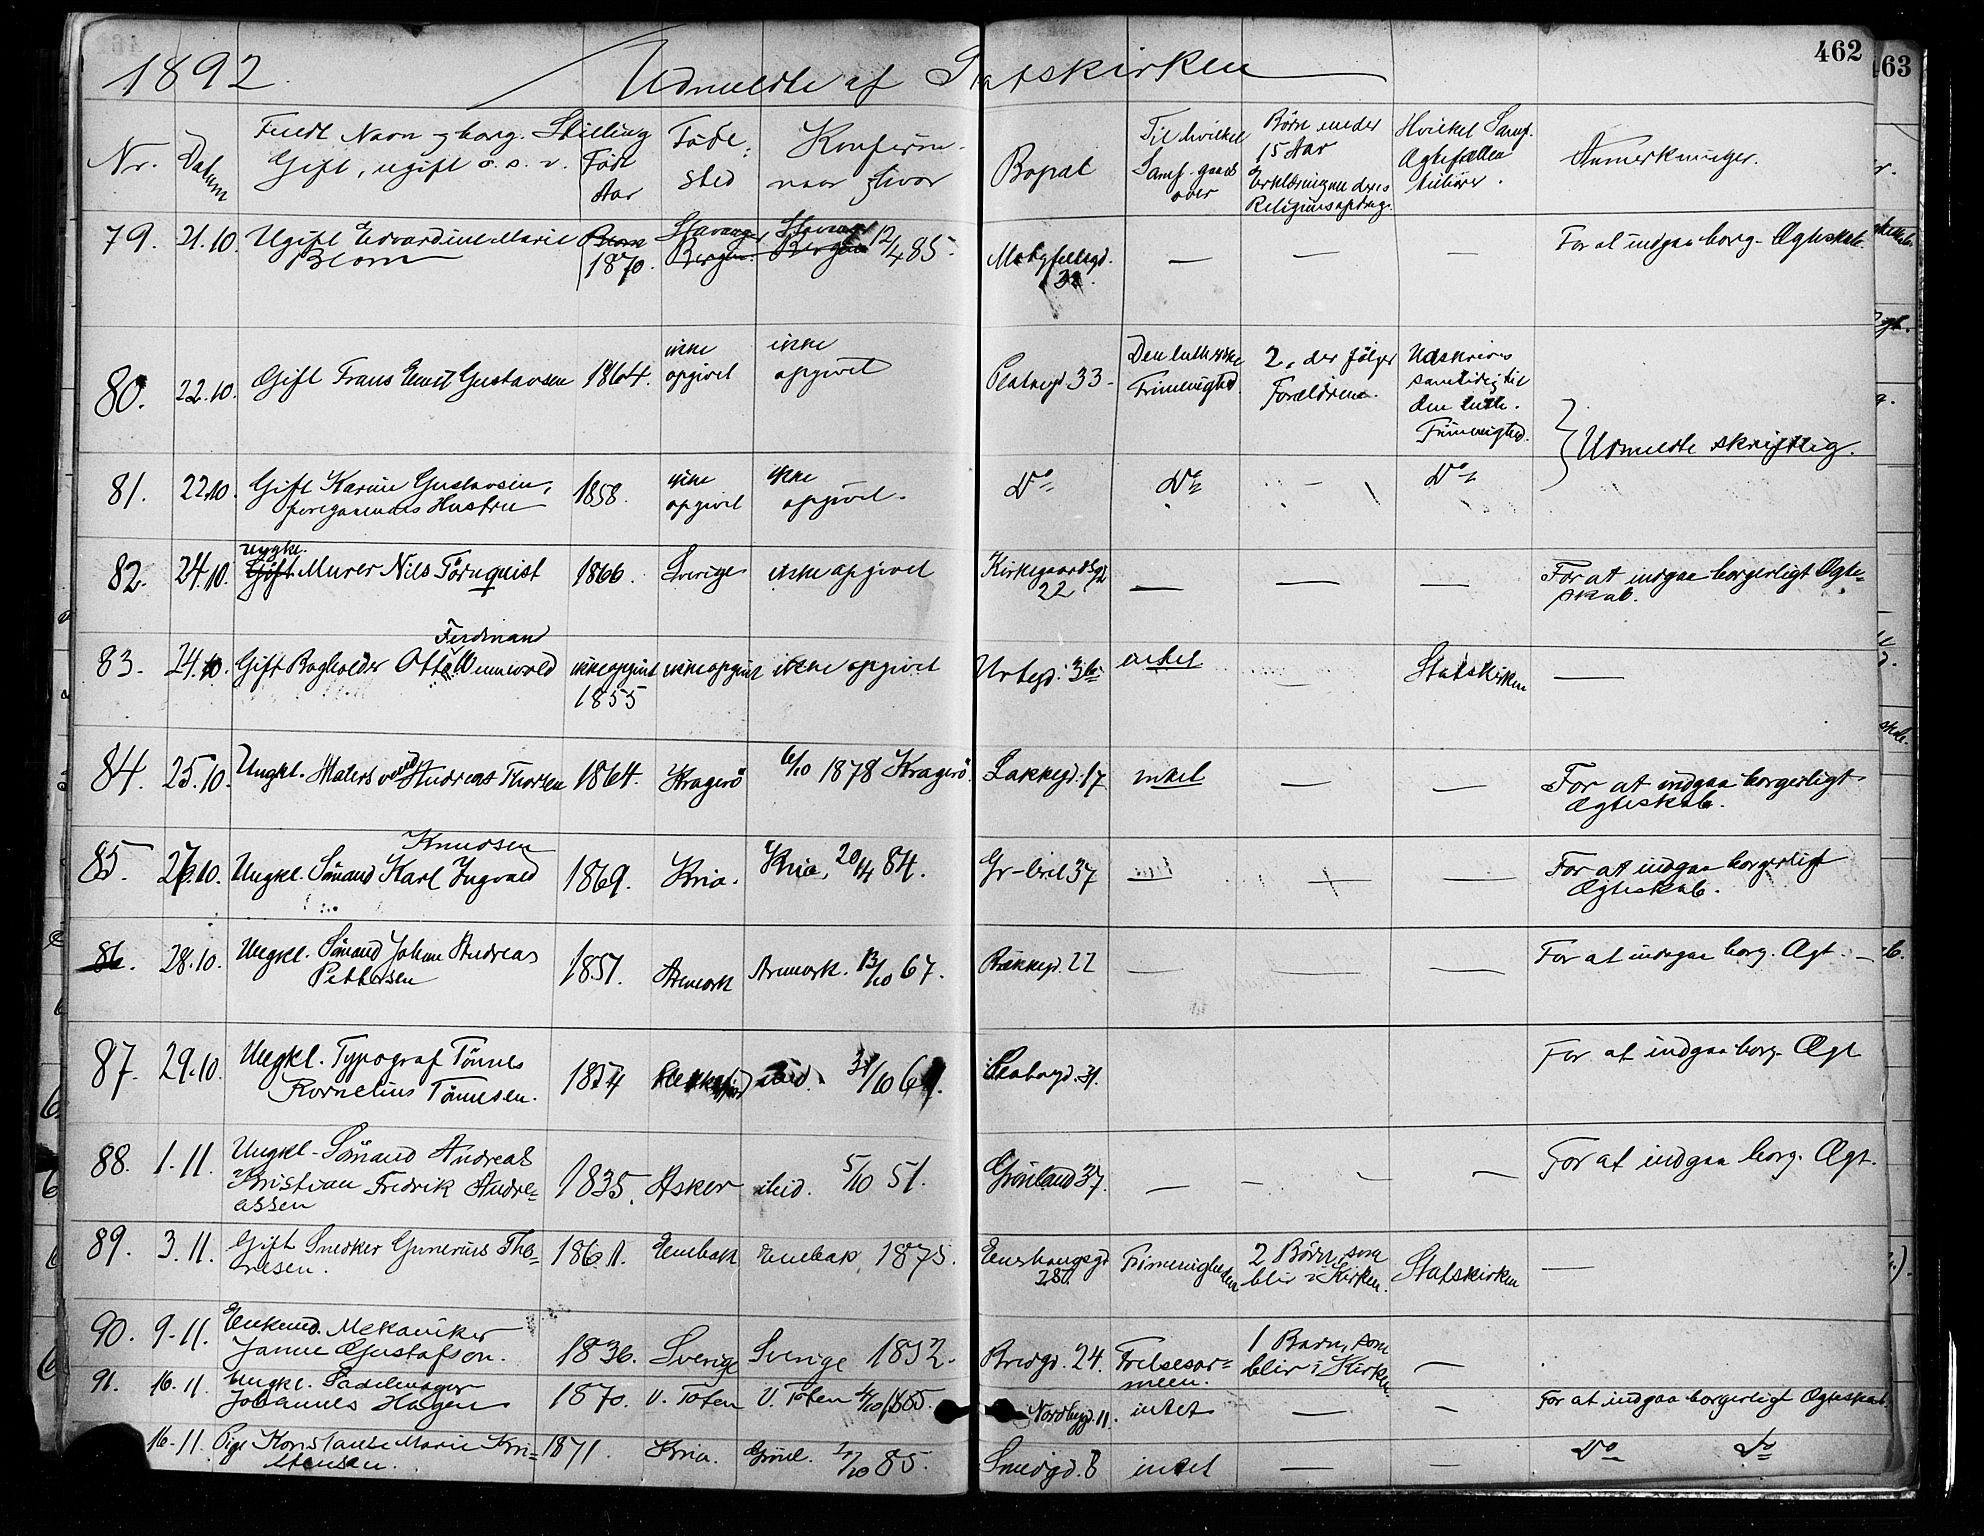 1892. Udmeldte af Statskirken 462
63
Nr. Datum Fuldt Navn og borg. Stilling Gift, ugift o. s. v. Født Aar Føde- sted Konfirm. naar og hvor Bopæl Til hvilket Samf. gaaet over Børn under 15 Aar Erklæring om deres Religionsopdrag. Hvilket Samf. Ægtefællen tilhører. Anmerkninger.
79. 21.10. Ugift Edvardine Marie Blom 1870. Stavanger Bergen. Stavanger Bergen 12/4 85. — — — For at indgaa borg. Ægteskab.
80. 22.10. Gift Frans Emil Gustavsen 1864. ikke opgivet ikke opgivet Platougd 33 - Den lutherske Frimenighed. 2, der følger Forældrene. Udskrives samtidig til den luth. Frimenighed. } Udmeldte skriftlig.
81. 22.10. Gift Karine Gustavsen, foregaaendes Hustru 1858. ikke opgivet ikke opgivet. Do Do — Do
82. 24.10. Ungkl. Gift Murer Nils Törnquist 1866. Sverige ikke opgivet Kirkegaardsgd 22 — — — For at indgaa borgerligt Ægte= skab.
83. 24.10. Gift Bogholder Otto Ferdinand ikke opgivet 1855 ikke opgivet ikke opgivet Urtegd. 36 intet — Statskirken —
84. 25.10. Ungkl. Malersvend Andreas Thorsen 1864. Kragerö 6/10 1878 Kragerö. Lakkegd. 17 intet — — For at indgaa borgerligt Ægteskab.
85. 26.10. Ungkl. Sömand Karl Ingvald Knudsen 1869. Kria. Kria, 20/4 84. 37 — — — For at indgaa borgerligt Ægteskab.
86. 28.10. Ungkl. Sömand Johan Andreas Pettersen 1851. Aremark Aremark. 13/10 67. Brækkegd. 22 — — — For at indgaa borg. Ægt. —
87. 29.10. Ungkl. Typograf Tönnes Kornelius Tönnesen. 1854 Flekkefjord ibid. For at indgaa borg. Ægt
88. 1.11. Ungkl. Sömand Andreas Kristian Fredrik Andre= assen 1835. Asker ibid. 5/10 51. Grönland 37. — — — — For at indgaa borg. Ægt.
89. 3.11. Gift Snedker Gunerius Tho= resen. 1861. Enebak Enebak, 1875. Enerhaugsgd 28. Frimenigheden 2 Börn, som blir i Kirken. Statskirken —
90. 9.11. Enkemd. Mekaniker Janne Gustafson. 1836. Sverige Sverige 1852. Bredgd. 24. Frelsesar= meen. 1 Barn, som blir i Kirken —
91. 16.11. Ungkl. Sadelmager Johannes Hagen 1870. V. Toten V. Toten Nordbygd. 11. intet — - For at indgaa borgerligt Ægteskab.
16.11. Pige Konstanse Marie Kri= stensen. 1871. Kria. Grönl. 85. Smedgd. 8 intet — — Do Do